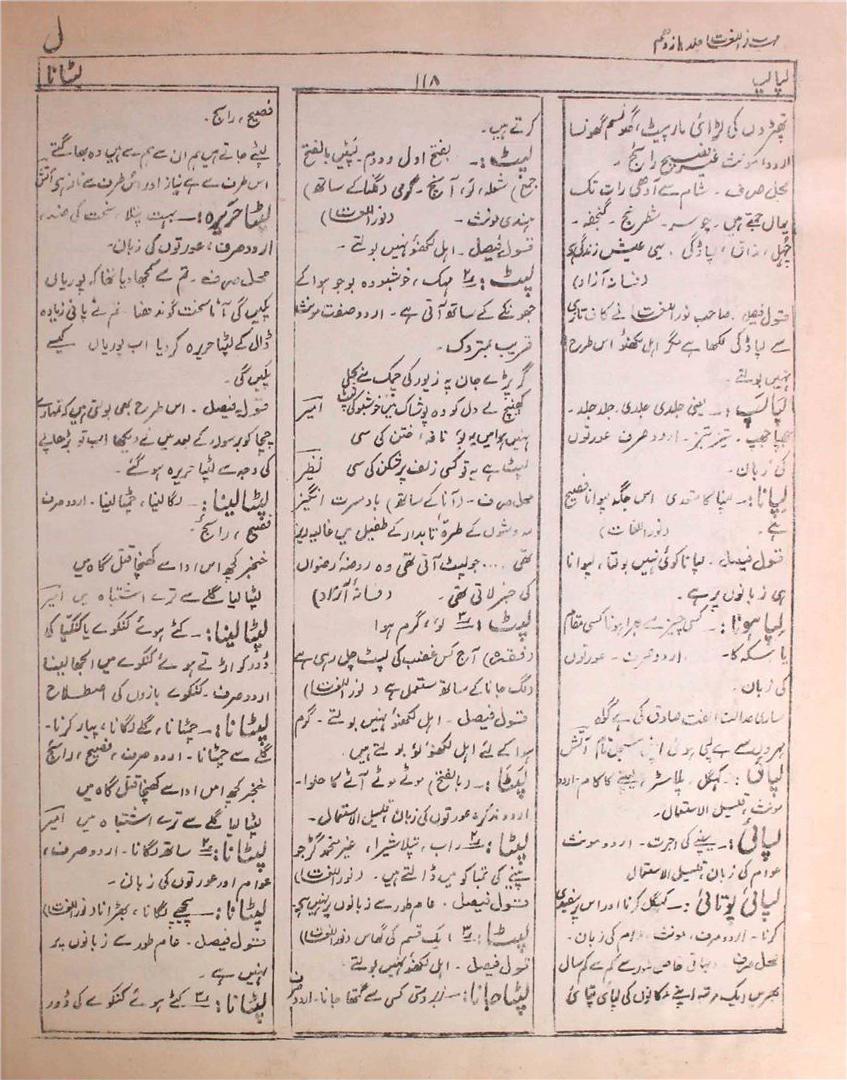 مہذب اللغت (جلد یازدہم
ل
لپالپ
۱۱۸
لپٹانا
تھپڑوں کی لڑائی مار پیٹ، گھونسم گھونسا
اردو، مونث غیر فصیح رائج ۔
محل صرف ۔ شام سے آدھی رات تک
یہاں جمتے ہیں ۔ چوسر ۔ شطرنج ۔ گنجفہ ۔
چہل، مذاق، لپاڈگی ۔ یہی عیش زندگی ہے
(فسانۂ آزاد)
قول فیصل ۔ صاحب نور اللغت نے کاف تازی
سے لپاڈکی لکھا ہے مگر اہل لکھنؤ اس طرح
نہیں بولتے ۔
لپالپ :۔ یعنی جلدی جلدی، جلد جلد ۔
جھپا جھپ ۔ تیز تیز ۔ اردو صرف عورتوں
کی زبان ۔
لپانا :۔ لپنا کا متعدی اس جگہ لپوانا فصیح
ہے ۔ (نور اللغات)
قول فیصل ۔ لپانا کوئی نہیں بولتا، لپوانا
ہی زبانوں پر ہے ۔
لپا ہونا :۔ کسی چیز سے بھرا ہونا کسی مقام
یا سکہ کا ۔ اردو صرف ۔ عورتوں
کی زبان ۔
ساری عدالت الفت صادق کی ہے گواہ
مہروں سے ہے لپی ہوئی اپنی تمام آتش
:۔ کہگل، پلاسٹر، لیپنے کا کام ۔ اردو
مونث، قلیل الاستعمال ۔
لپائی :۔ لیپنے کی اجرت ۔ اردو مونث
عوام کی زبان قلیل الاستعمال
لپائی پوتائی :۔ کہگل کرنا اور اس پر سفیدی
کرنا ۔ اردو صرف، مونث، عوام کی زبان ۔
محل صرف ۔ دیہاتی خاص طور سے کم سے کم سال
بھر میں ایک مرتبہ اپنے مکانوں کی لپائی پتائی
کرتے ہیں ۔
لپٹ :۔ بفتح اول و دوم ۔ لپٹیں بالفتح
جمع) شعلہ، لو، آنچ ۔ گرمی (لگنا کے ساتھ)
ہندی مونث ۔ (نور اللغات)
قول فیصل ۔ اہل لکھنؤ نہیں بولتے ۔
لپٹ :۔ ۲ مہک، خوشبو وہ بو جو ہوا کے
جھونکے کے ساتھ آتی ہے ۔ اردو صفت مونث
قریب بمتروک ۔
گر پڑے جان پہ زیور کی چمک نے بجلی
کھینچ لے دل کو وہ پوشاک میں خوشبو کی لپٹ امیر
نہیں ہوا میں یہ بو نافۂ ختن کی سی
لپٹ ہے یہ تو کسی زلف پر شکن کی سی نظیر
محل صرف ۔ (آنا کے ساتھ) باد مسرت انگیز
مہ وشوں کے طرۂ تابدار کے طفیل میں غالیہ بیز
تھی ... جو لپٹ آتی تھی وہ روضۂ رضواں
کی خبر لاتی تھی ۔ (فسانۂ آزاد)
لپٹ :۔ ۳ لو، گرم ہوا
(فقرہ) آج کس غضب کی لپٹ چل رہی ہے
(لگ جانا کے ساتھ مستعمل ہے (نور اللغات)
قول فیصل ۔ اہل لکھنؤ نہیں بولتے ۔ گرم
ہوا کے لئے اہل لکھنؤ لو بولتے ہیں ۔
لپٹا :۔ (بالفتح) موٹے موٹے آٹے کا حلوا ۔
اردو مذکر، عورتوں کی زبان قلیل الاستعمال ۔
لپٹا :۔ ۲ راب، پتلا شیرا، غیر منجمد گڑ جو
پینے کی تمباکو میں ڈالتے ہیں ۔ (نور اللغت)
قول فیصل ۔ عام طور سے زبانوں پر نہیں ہے
لپٹا :۔ ۳ ایک قسم کی گھاس (نور اللغات)
قول فیصل ۔ اہل لکھنؤ نہیں بولتے ۔
لپٹا جانا :۔ زبردستی کسی سے گتھا جانا ۔ اردو صرف
فصیح، رائج ۔
لپٹے جاتے ہیں ہم ان سے ہم سے ہیں وہ بھاگتے
اس طرف سے ہے نیاز اور اس طرف سے ناز ہے آتش
لپٹا حریرہ :۔ بہت پتلا، سخت کی ضد،
اردو صرف، عورتوں کی زبان ۔
محل صرف ۔ تم سے سمجھا دیا تھا کہ پوریاں
پکیں گی آٹا سخت گوندھنا ۔ تم نے پانی زیادہ
ڈال کے لپٹا حریرہ کر دیا اب پوریاں کیسے
پکیں گی ۔
قول فیصل ۔ اس طرح بھی بولتی ہیں کہ تمہارے
چچا کو برسوں کے بعد میں نے دیکھا اب تو بڑھاپے
کی وجہ سے لپٹا حریرہ ہو گئے ۔
لپٹا لینا :۔ لگا لینا، چمٹا لینا ۔ اردو صرف
فصیح، رائج ۔
خنجر کچھ اس ادا سے کھنچا قتل گاہ میں
لپٹا لیا گلے سے ترے اشتباہ میں امیر
لپٹا لینا :۔ کٹے ہوئے کنکوے یا کنکیا کی
ڈور کو اڑتے ہوئے کنکوے میں الجھا لینا
اردو صرف ۔ کنکوے بازوں کی اصطلاح
لپٹانا :۔ چمٹانا، گلے لگانا، پیار کرنا ۔
گلے سے چمٹانا ۔ اردو صرف، فصیح، رائج
خنجر کچھ اس ادا سے کھنچا قتل گاہ میں
لپٹا لیا گلے سے ترے اشتباہ میں امیر
لپٹانا :۔ ۲ ساتھ لگانا ۔ اردو صرف،
عوام اور عورتوں کی زبان ۔
لپٹانا :۔ پیچھے لگانا، بھڑانا (نور اللغات)
قول فیصل ۔ عام طور سے زبانوں پر
نہیں ہے ۔
لپٹانا :۔ ۳ کٹے ہوئے کنکوے کی ڈور